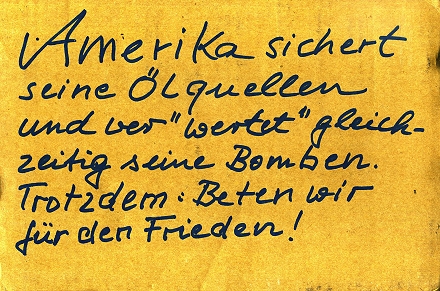 Amerika sichert
seine Ölquellen
und ver"wertet" gleich-
zeitig seine Bomben.
Trotzdem: Beten wir
für den Frieden!